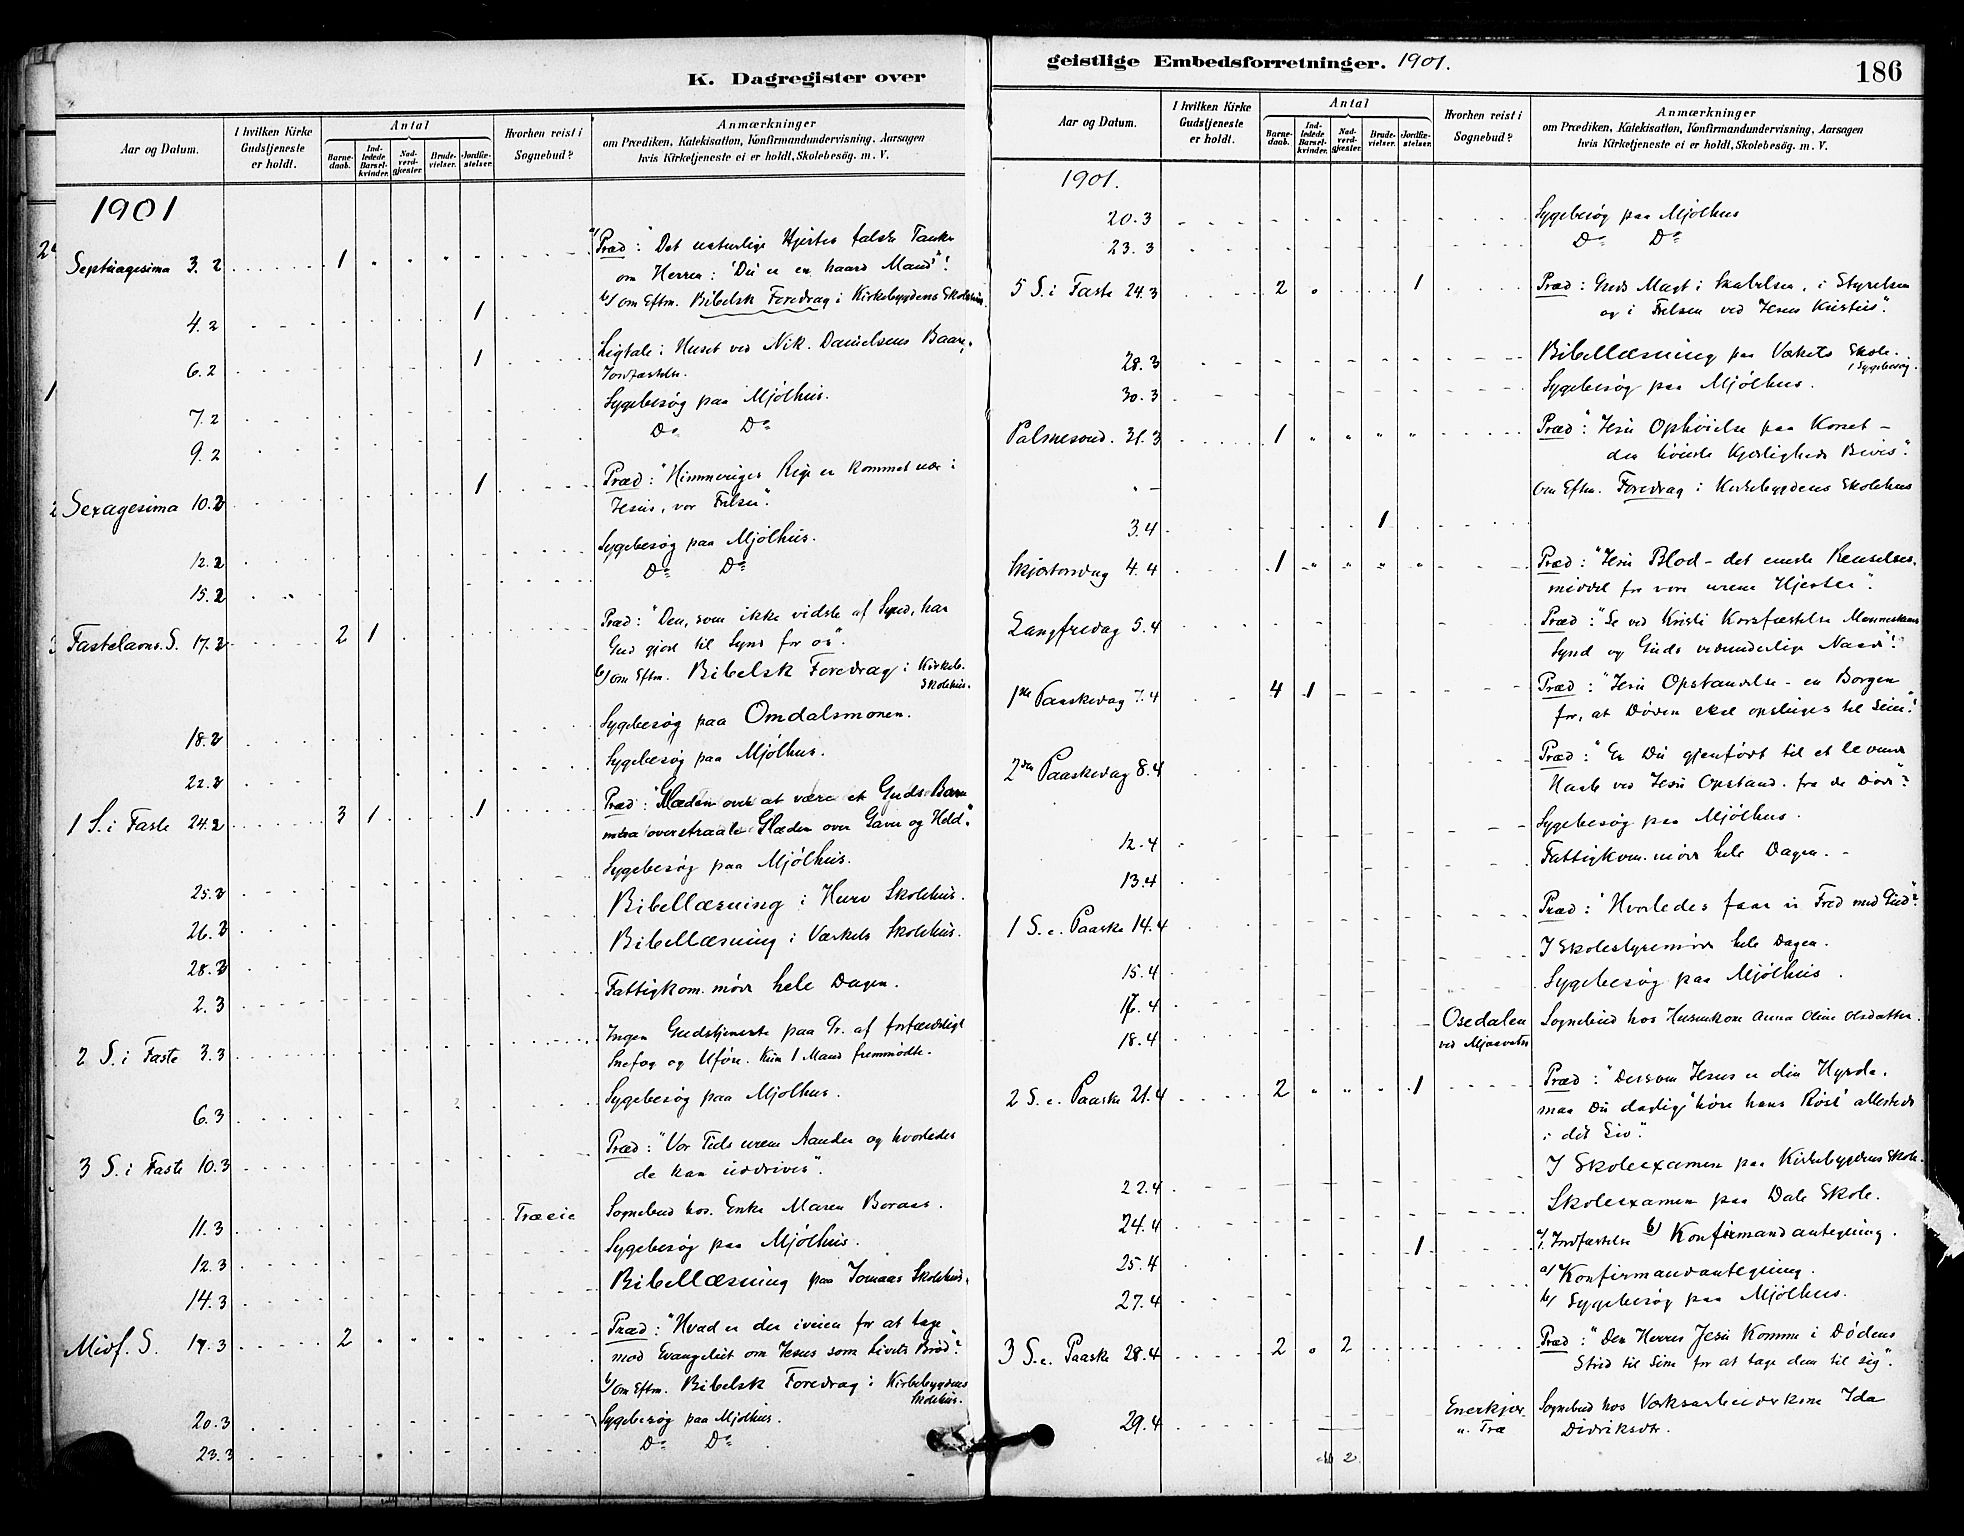 K. Dagregister over
Aar og Datum.
I hvilken Kirke Gudstjeneste er holdt.
Antal
Barnedaab.
Indledede Barselkvinder.
Nadverdgjester.
Brudevielser.
Jordfæstelser.
Hvorhen reist i Sognebud?
Anmærkninger
om Prædiken, Katekisation, Konfirmandundervisning, Aarsagen
hvis Kirketjeneste ei er holdt, Skolebesøg. m. V.
1901
Septuagesima 3.2 1 a/ Præd: "Det naturlige Hjertes falske Tanke
om Herren: 'Du er en haard Mand'"!
b/ om Eftm. Bibelsk Foredrag i Kirkebygdens Skolehus.
4.2 1
Ligtale i Huset ved Nik. Danielsens Baare,
6.2 1 Jordfæstelse.
Sygebesøg paa Mjölhus.
7.2 Do Do
9.2
Sexagesima 10.2 1 Præd: "Himmeriges Rige er kommet nær i
Jesus, vor Frelser".
12.2 Sygebesøg paa Mjölhus.
15.2 Do Do
Fastelavns S. 17.2 2 1 Præd: "Den, som ikke vidste af Synd, har
Gud gjort til Synd for os".
b/ om Eftm. Bibelsk Foredrag i Kirkeb.
Skolehus.
18.2 Sygebesøg paa Omdalsmonen.
22.2 Sygebesøg paa Mjölhus.
1 S. i Faste 24.2 3 1 1 Præd: "Glæden over at være et Guds Barn
maa overstraale Glæden over Gaver og Held".
25.2 Sygebesøg paa Mjölhus.
26.2 Bibellæsning i Hurv Skolehus.
28.2 Bibellæsning i Værkets Skolehus.
2.3 Fattigkom. möde hele Dagen.
2 S. i Faste 3.3 Ingen Gudstjeneste paa Gr. af forfærdeligt
Snefog og Uføre. Kun 1 Mand fremmødte.
6.3 Sygebesøg paa Mjölhus.
3 S. i Faste 10.3 Præd: "Vor Tids urene Aander og hvorledes
de kan uddrives".
11.3 Træeie Sognebud hos Enke Maren Boraas.
12.3 Sygebesøg paa Mjölhus.
14.3 Bibellæsning paa Jomaas Skolehus.
Midf. S. 17.3 2 Præd: "Hvad er der iveien for at tage
mod Evangeliet om Jesus som Livets Brød"?
b/ om Eftm. Bibelsk Foredrag i Kirkebygdens
Skolehus.
20.3 Sygebesøg paa Mjölhus.
23.3 Do Do
geistlige Embedsforretninger. 1901.
186
Aar og Datum.
I hvilken Kirke Gudstjeneste er holdt.
Antal
Barnedaab.
Indledede Barselkvinder.
Nadverdgjester.
Brudevielser.
Jordfæstelser.
Hvorhen reist i Sognebud?
Anmærkninger
om Prædiken, Katekisation, Konfirmandundervisning, Aarsagen
hvis Kirketjeneste ei er holdt, Skolebesøg. m. V.
1901.
20.3 Sygebesøg paa Mjölhus
23.3 Do Do
5 S. i Faste 24.3 2 1 Præd: Guds Magt i Skabelsen, i Styrelsen
og i Frelsen ved Jesus Kristus".
28.3 Bibellæsning paa Værkets Skole.
/ Sygebesög.
30.3 Sygebesøg paa Mjölhus.
Palmesønd. 31.3 1 Præd: "Jesu Ophöielse paa Korset –
den höieste Kjærligheds Bevis".
" – Om Eftm. Foredrag i Kirkebygdens Skolehus
3.4 1
Skjærtorsdag 4.4 1 Præd: "Jesu Blod – det eneste Renselses-
middel for vore urene Hjerter".
Langfredag 5.4 Præd: "Se ved Kristi Korsfæstelse Menneskens
Synd og Guds vidunderlige Naade"!
1ste Paaskedag 7.4 4 1 Præd: "Jesu Opstandelse – en Borgen
for, at Døden skal opsluges til Seier".
2den Paaskedag 8.4 Præd: "Er Du gjenfödt til et levende
Haab ved Jesu Opstand. fra de Døde"?
12.4 Sygebesøg paa Mjölhus.
13.4 Fattigkom. möde hele Dagen. –
1 S. e. Paaske 14.4 Præd: "Hvorledes faar vi Fred med Gud"?
15.4 I Skolestyremöde hele Dagen.
17.4 Sygebesøg paa Mjölhus.
18.4 Osedalen Sognebud hos Husmkone Anna Oline Olsdatter.
ved Mjaavatn
2 S. e. Paaske 21.4 2 1 Præd: "Dersom Jesus er din Hyrde,
maa Du daglig 'höre hans Röst' allesteds
i dit Liv".
22.4 I Skoleexamen paa Kirkebygdens Skole.
24.4 Skoleexamen paa Dale Skole.
25.4 1 a/ Jordfæstelse b/ Konfirmandantegning.
27.4 a/ Konfirmandantegning.
b/ Sygebesøg paa Mjölhus.
3 S. e. Paaske 28.4 2 2 Præd: "Den Herres Jesu Komme i Dødens
Stund til Sine for at tage dem til sig".
29.4 Enerkjær Sognebud hos Værksarbeiderkone Ida
u. Træ Didriksdtr.
2